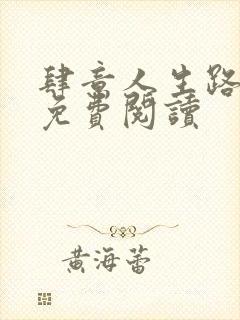 肆意人生路
免費閱讀
黃海蕾